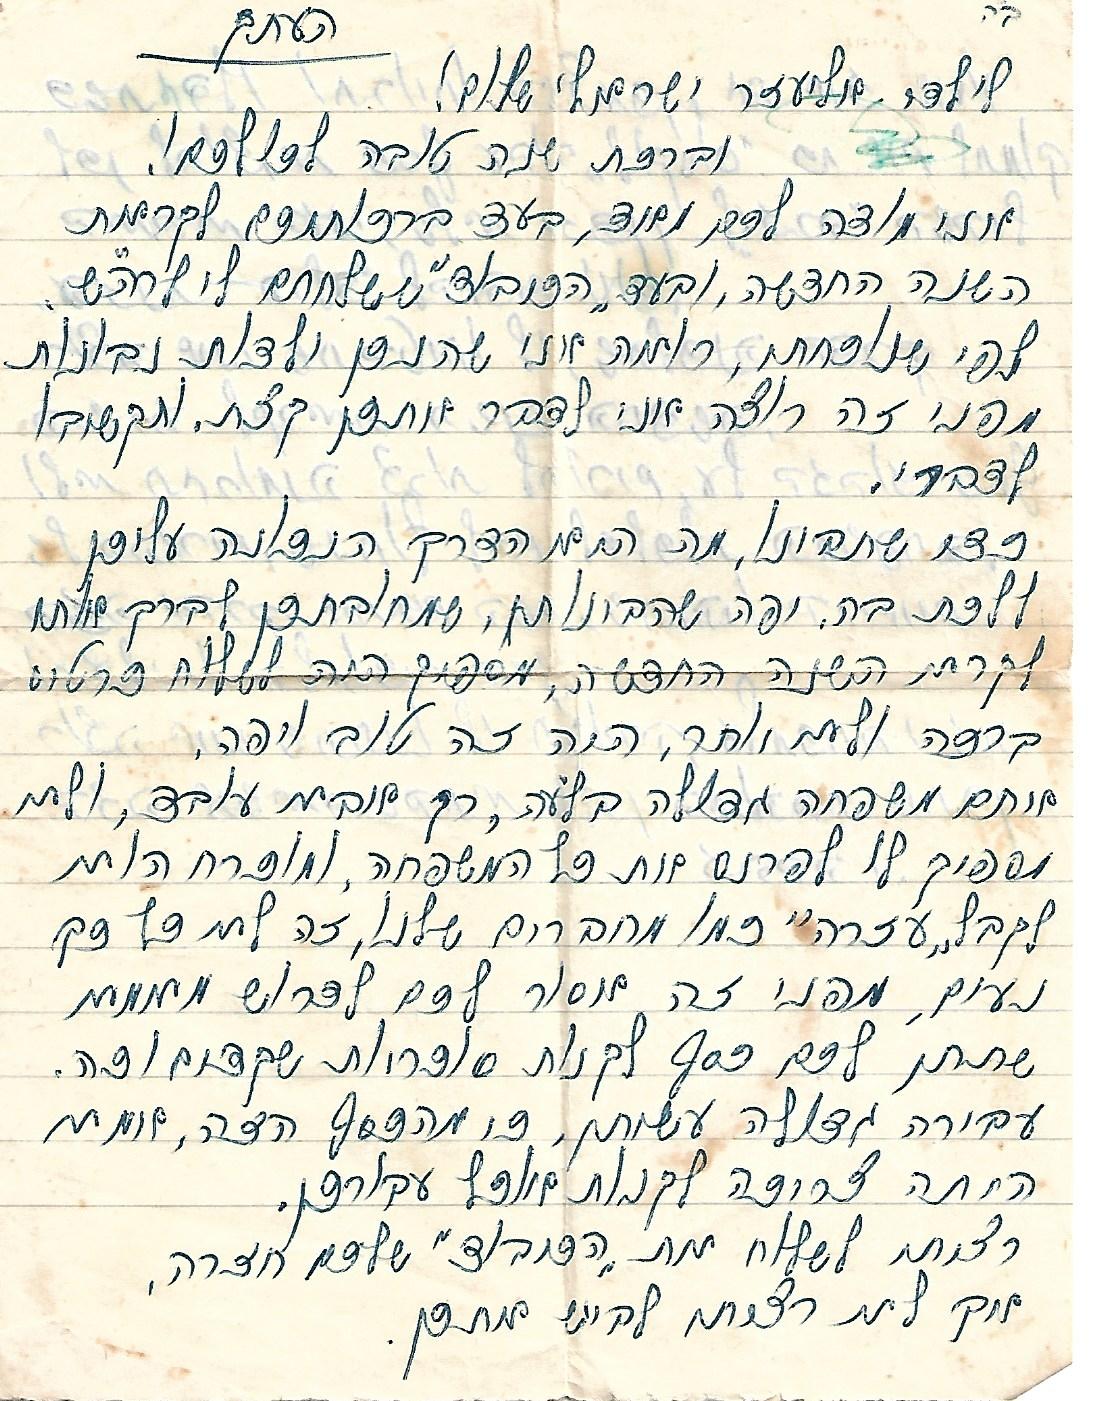 ב"ה
העתק
לילד אליעזר ישראלי שלום!
וברכת שנה טובה לכולכם!
אני מודה לכם מאוד, בעד ברכותכם לקראת
השנה החדשה, ובעד "הכיבוד" ששלחתם לי לר"ה.
לפי שנוכחתי, רואה אני שהנכן ילדות נבונות
מפני זה רוצה אני לדבר אתכן קצת. ותקשיבו
לדברי.
כדי שתבינו, מה היא הדרך הנכונה עליכן
ללכת בה. יפה שהבינותן, שמחובתכן לברך אותי
לקראת השנה החדשה, מספיק היה לשלוח כרטיס
ברכה ולא יותר, היה זה טוב ויפה,
אתם משפחה גדולה בלע"ה, רק אביא עובד, ולא
מספיק לו לפרנס את כל המשפחה, ומוכרח הוא
לקבל "עזרה" כמו מחברים שלנו, זה לא כל כך
נעים, מפני זה אסור לכם לדרוש מאמא
שתתן לכם כסף לקנות סוכריות שקדים וכו'.
עבירה גדולה עשיתן, כי מהכסף הזה, אמא
היתה צריכה לקנות אוכל עבורכן.
רציתי לשלוח את "הכיבוד" שלכם חזרה,
אך לא רציתי לבייש אתכן.